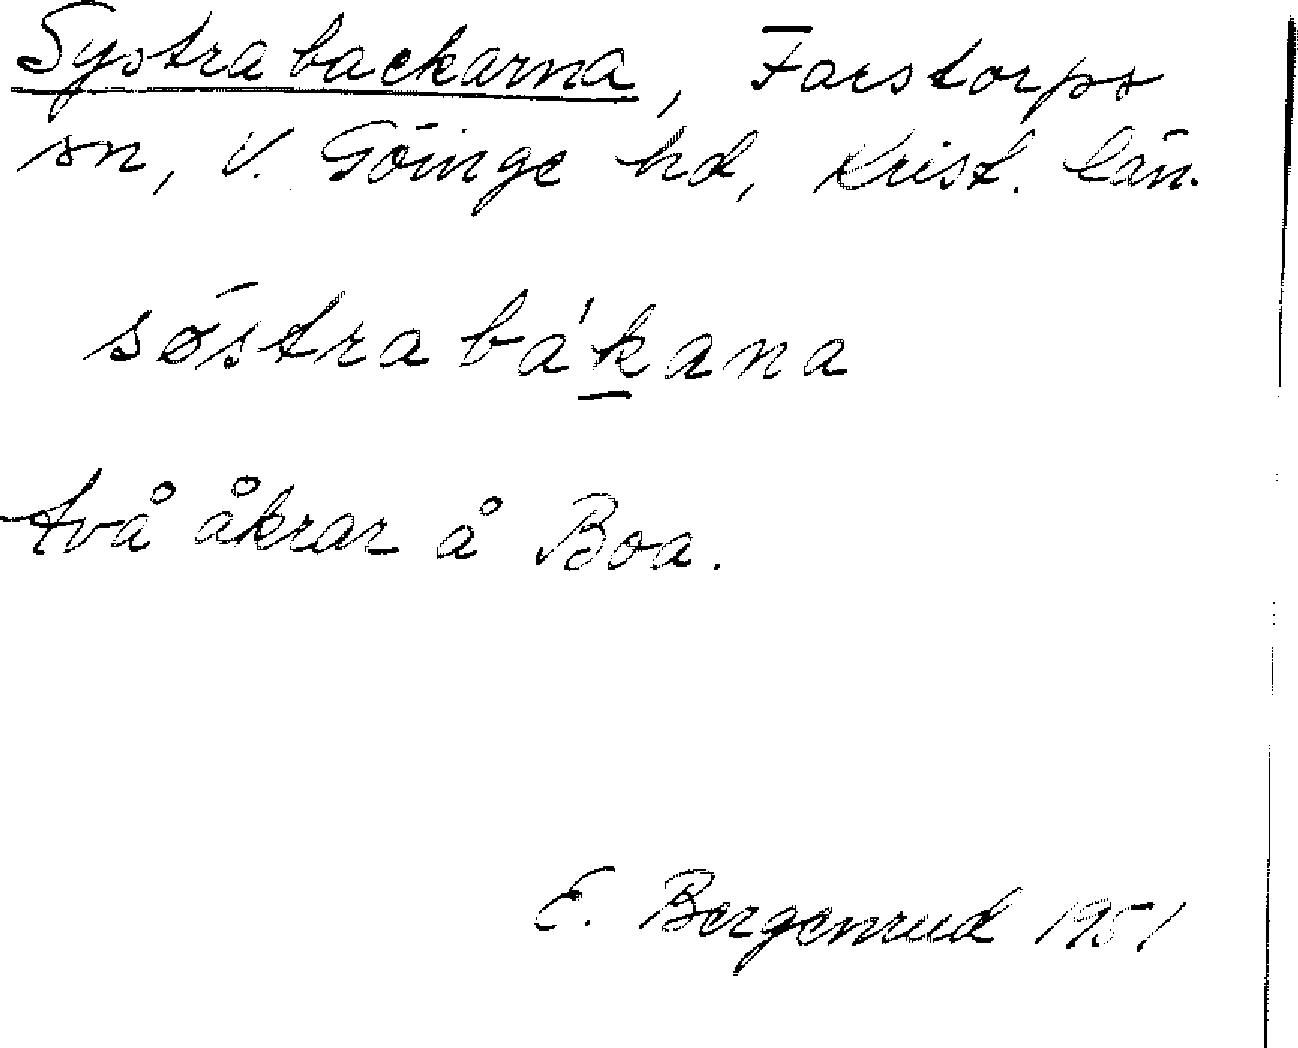 Systrabackarna, Farstorps
sn, V. Göinge hd, Krist. län.
søstrabákana
två åkrar å Boa.
E. Bergenrud 1951